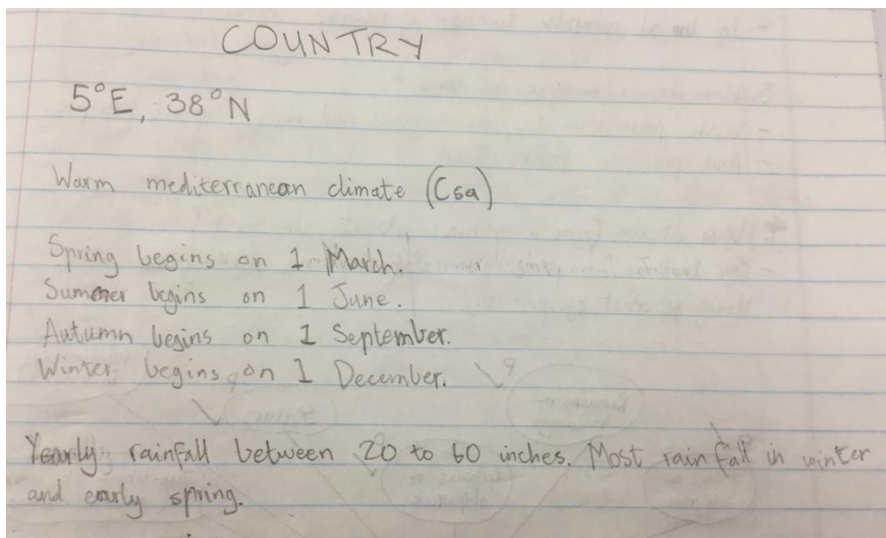 COUNTRY
5°E, 38°N
Warm mediterranean climate (Csa)
Spring begins on 1 March.
Summer begins on 1 June.
Autumn begins on 1 September.
Winter begins on 1 December.
Yearly rainfall between 20 to 60 inches. Most rainfall in winter
and early spring.